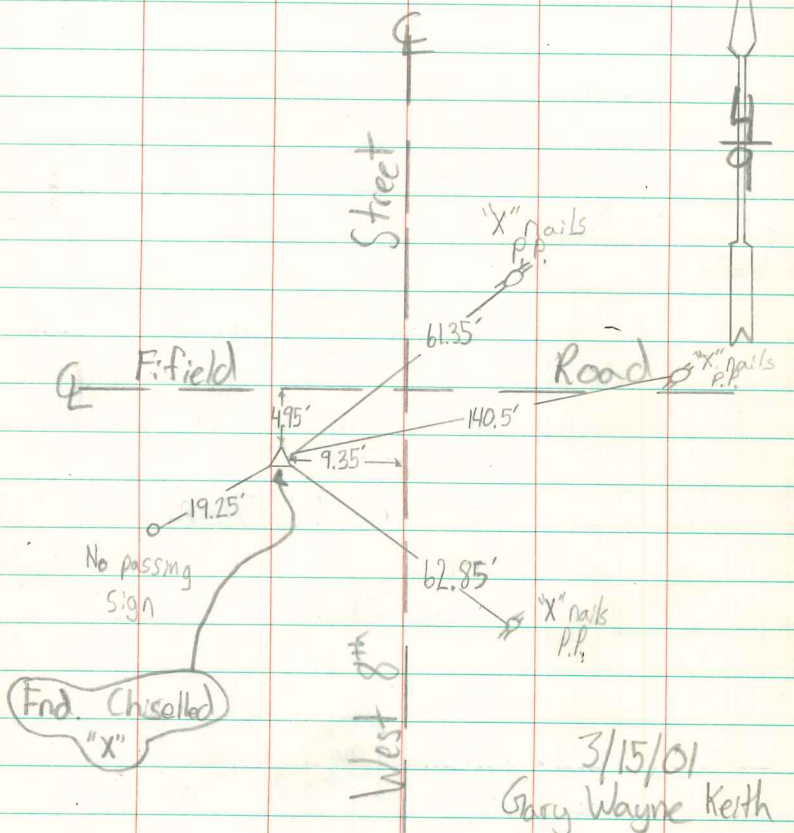 ℄
Street
4
9
"X" nails
P.P.
61.35'
℄ Fifield Road
"X" nails
P.P.
4.95'
140.5'
9.35'
19.25'
No passing
Sign
62.85'
"X" nails
P.P.
Fnd. Chiselled
"X"
West 8th
3/15/01
Gary Wayne Keith